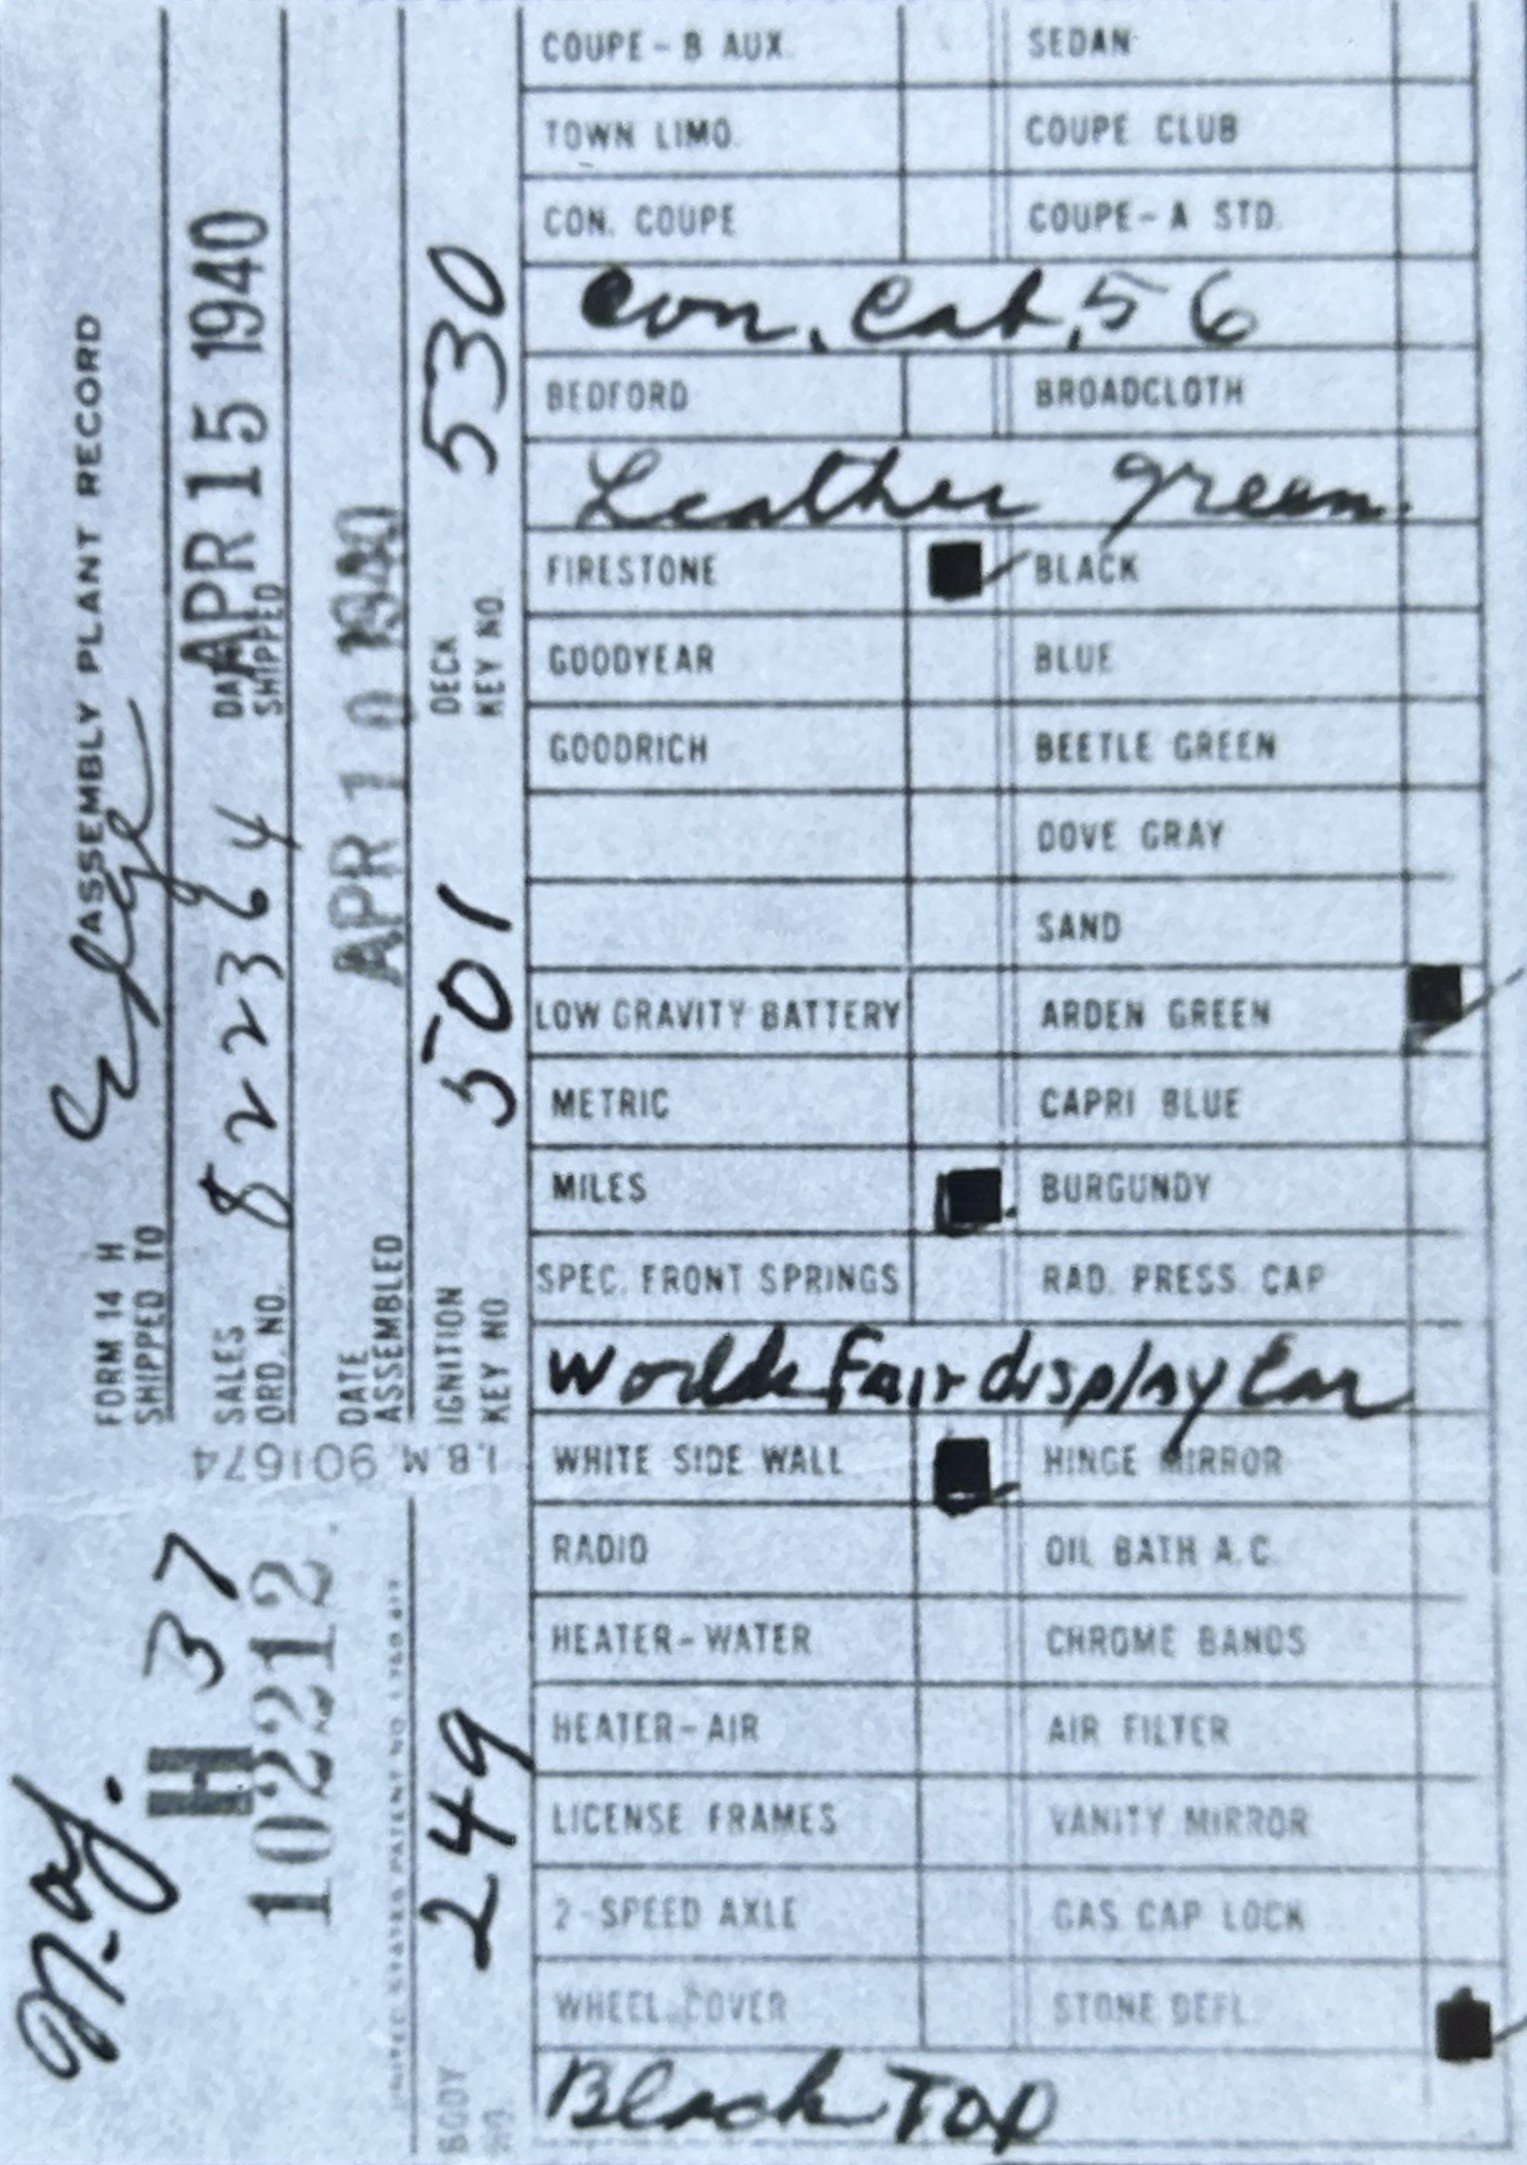 FORM 14 H ASSEMBLY PLANT RECORD
SHIPPED TO
SALES ORD. NO. 82364 DATE SHIPPED APR 15 1940
DATE ASSEMBLED APR 10 1940
IGNITION KEY NO. 501 DECK KEY NO. 530
I.B.M. 901674
H 37
102212
BODY NO. 249
COUPE - B AUX. SEDAN
TOWN LIMO. COUPE CLUB
CON. COUPE COUPE - A STD.
Con. Cab. 56
BEDFORD BROADCLOTH
Leather green
FIRESTONE BLACK
GOODYEAR BLUE
GOODRICH BEETLE GREEN
DOVE GRAY
SAND
LOW GRAVITY BATTERY ARDEN GREEN
METRIC CAPRI BLUE
MILES BURGUNDY
SPEC. FRONT SPRINGS RAD. PRESS. CAP
Worlds Fair display Car
WHITE SIDE WALL HINGE MIRROR
RADIO OIL BATH A.C.
HEATER - WATER CHROME BANDS
HEATER - AIR AIR FILTER
LICENSE FRAMES VANITY MIRROR
2 - SPEED AXLE GAS CAP LOCK
WHEEL COVER STONE DEFL.
Black Top